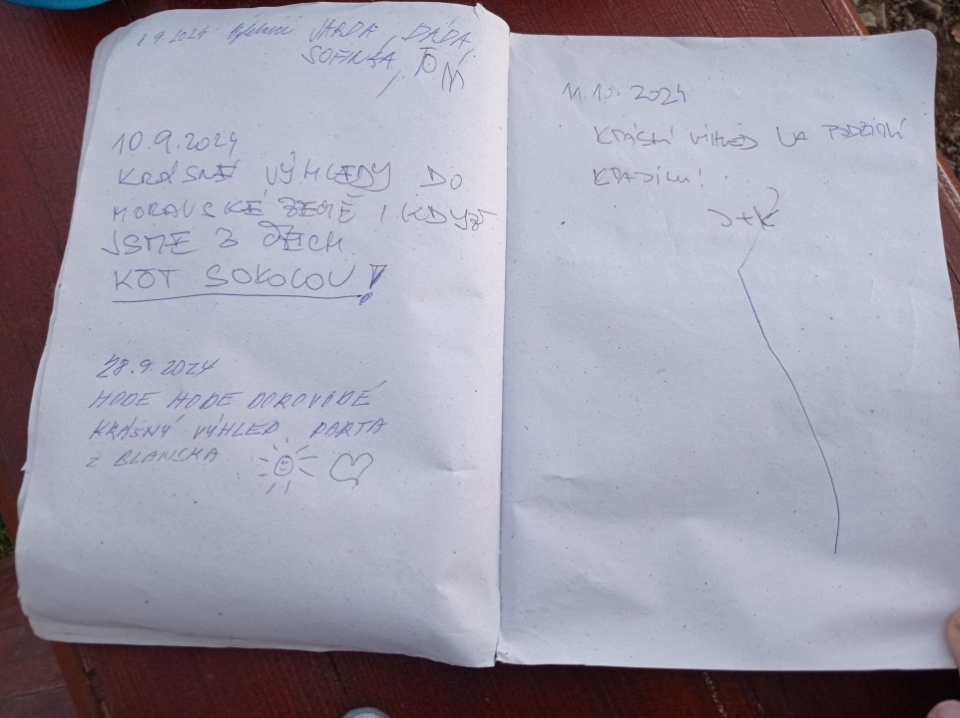 9.2024 VARDA, DÁĎA,
SOFINKA, TOM
10.9.2024
KRÁSNÉ VÝHLEDY DO
MORAVSKÉ ZEMĚ I KDYŽ
JSME Z ČECH.
KČT SOKOLOV!
28.9.2024
HODE HODE DOROVODÉ
KRÁSNÝ VÝHLED PARTA
Z BLANSKA
11.10.2024
KRÁSNÝ VÝHLED NA PODZIMNÍ
KRAJINU!
J+K